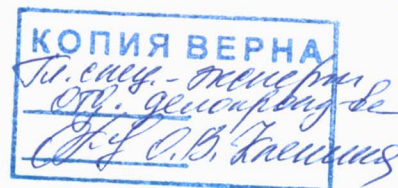 КОПИЯ ВЕРНА
Гл. спец.-эксперт
отд. делопроизв-ва
О.В.